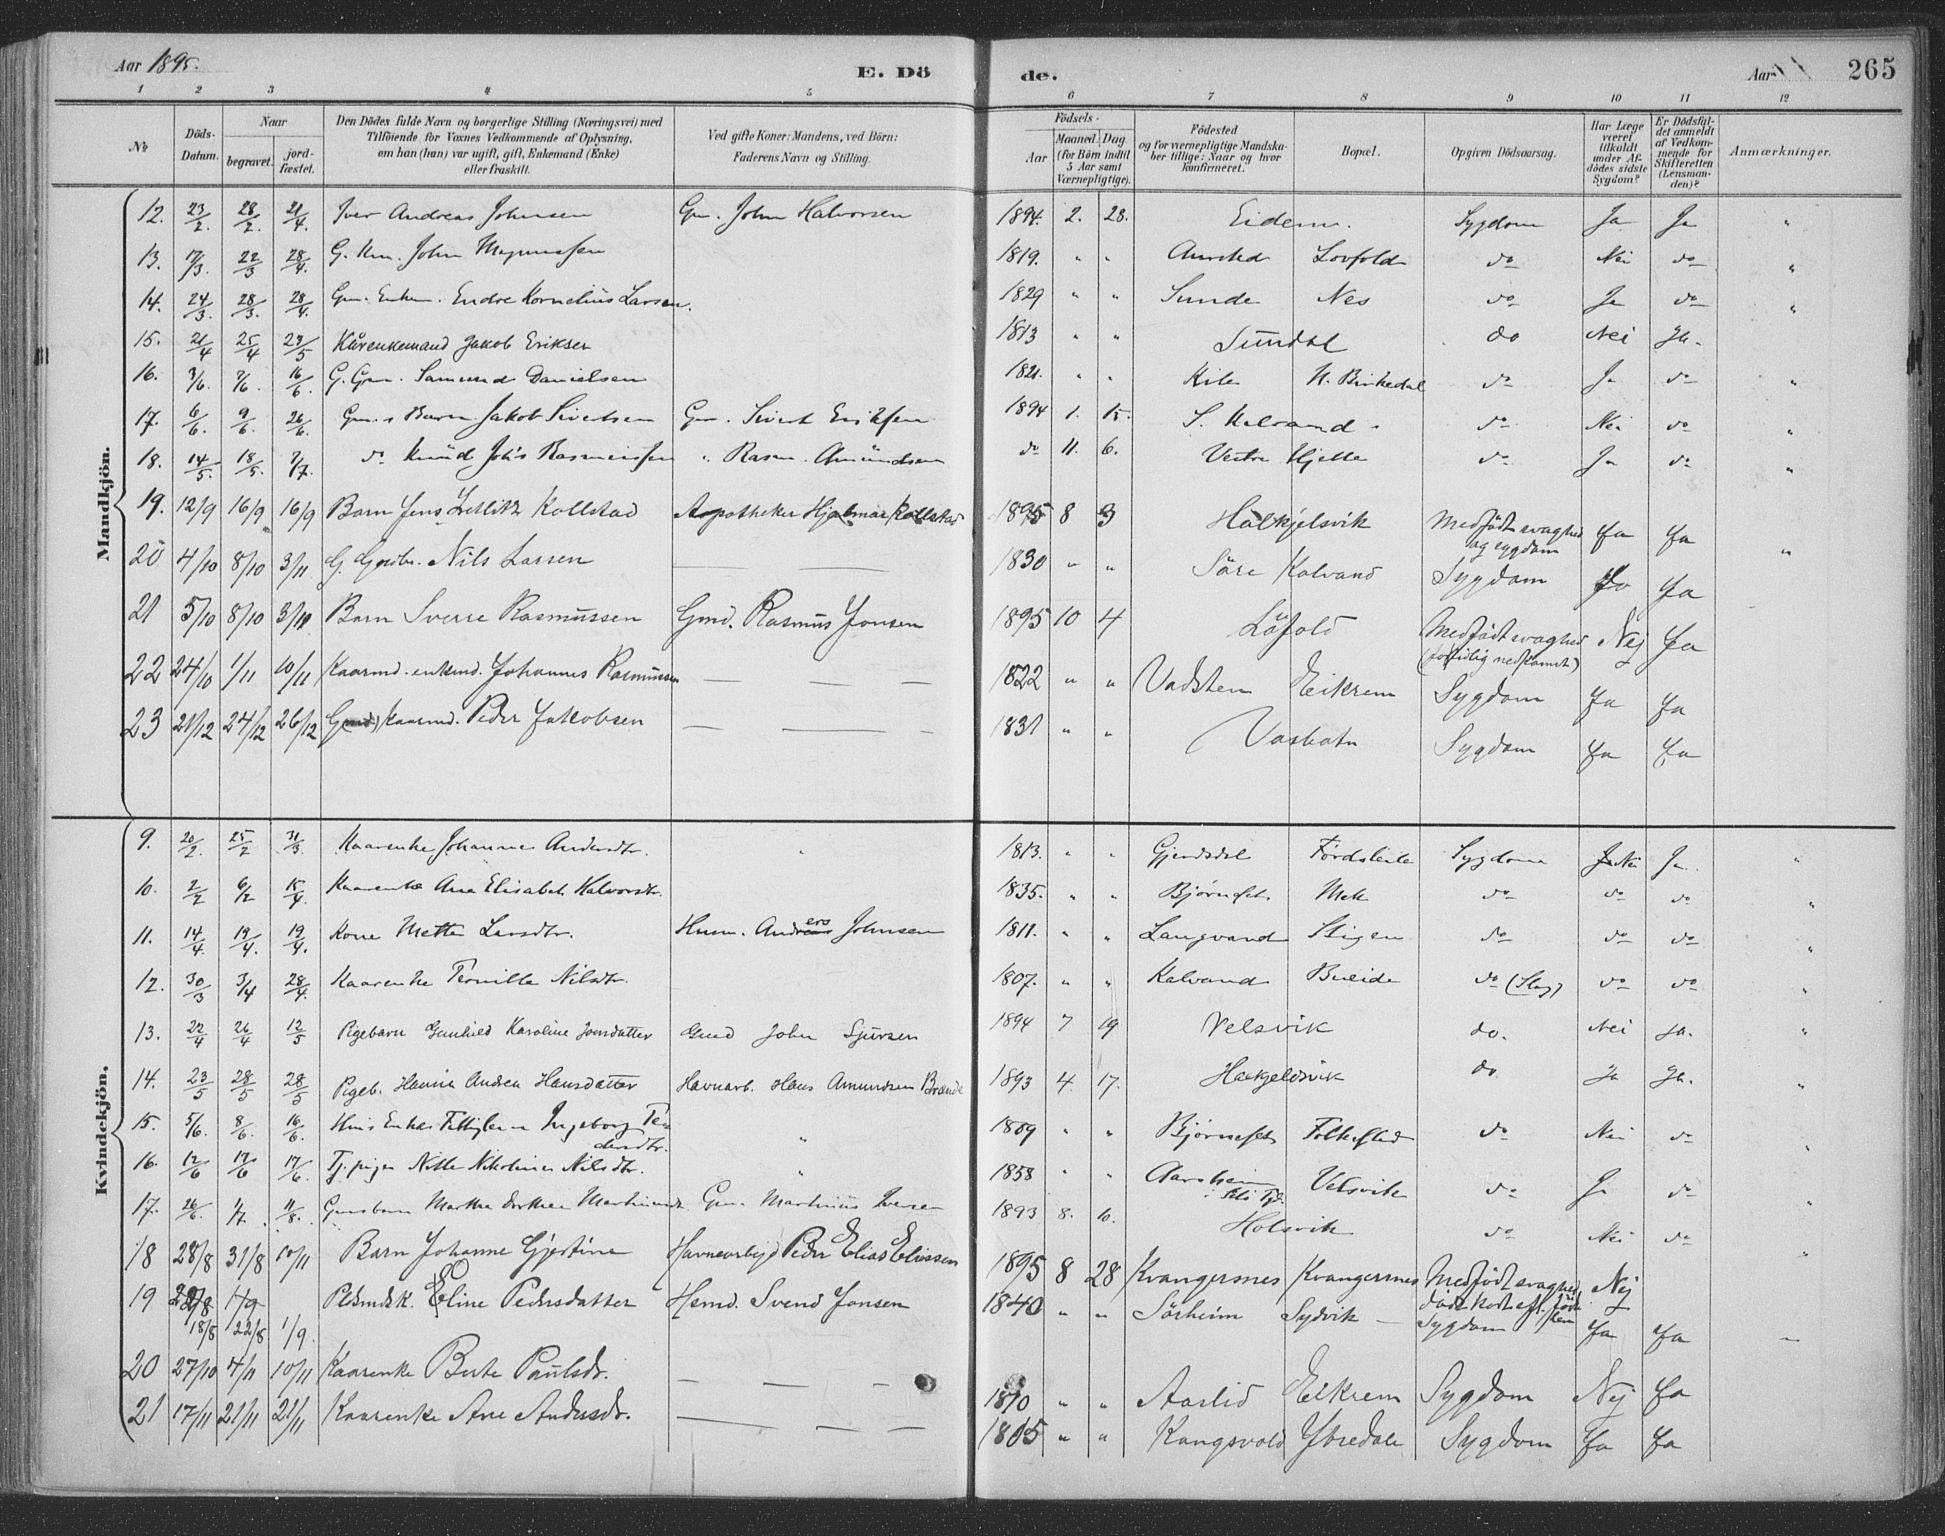 Aar 1895.
E. Dö
de.
Aar
265
1 2 3 4 5 6 7 8 9 10 11 12
No
Döds-Datum.
Naar
begravet.
jord-fæstet.
Den Dödes fulde Navn og borgerlige Stilling (Næringsvei) med
Tilföiende for Voxnes Vedkommende af Oplysning,
om han (hun) var ugift, gift, Enkemand (Enke)
eller fraskilt.
Ved gifte Koner: Mandens, ved Börn:
Faderens Navn og Stilling.
Födsels-
Aar
Maaned. Dag
(for Börn indtil
5 Aar samt
Værnepligtige).
Födested
og for værnepligtige Mandska-
ber tillige: Naar og hvor
konfirmeret.
Bopæl.
Opgiven Dödsaarsag.
Har Læge
været
tilkaldt
under Af-
dödes sidste
Sygdom?
Er Dödsfal-
det anmeldt
af Vedkom-
mende for
Skifteretten
(Lensman-
den)?
Anmærkninger.
Mandkjön.
12. 23/2. 28/2. 21/4 Iver Andreas Johnsen Gm. John Halvorsen 1894. 2. 28. Eidem. Sygdom Ja Ja "
13. 17/3. 22/3 28/4. John Magnussen 1819. " " Aursted Lovfold do Nei do "
14. 24/3. 28/3. 28/4. Gm. Enkem. Endre Kornelius Larsen. 1829 " " Sunde Nes do Ja do "
15. 21/4 25/4 23/5 Kårenkemand Jakob Eriksen 1813 " " Sundal do Nei Ja.
16. 3/6. 7/6. 16/6. G. Gm. Samund Danielsen 1821. " " Kile N. Birkedal do Ja do "
17. 6/6. 9/6. 26/6. Gm.s Barn Jakob Sivertsen Gm. Sivert Eriksen 1894 1. 15. S. Kalvand. do Nei do "
18. 14/5. 18/5. 7/7. do Knud Johs Rasmussen " Rasm. Amundsen do 11. 6. Vestre Hjelle do Ja do "
19. 12/9 16/9 16/9 Barn Jens Kollstad Apotheker Hjalmar Kollstad 1895 8 3 Halkjelsvik Medfødt svaghed og sygdom Ja Ja
20 4/10 8/10 3/11 G. Nils Larsen 1830 " " Søre Kalvand Sygdom Ja "
21 5/10 8/10 3/11 Barn Sverre Rasmussen Gmd. Rasmus Jonsen 1895 10 4 Löfold Medfødt svaghed (fortidlig nedkomst) Nej Ja
22 24/10 1/11 10/11 Kaarmd. enkmd. Johannes Rasmussen 1822 " " Vadsten Eikrem Sygdom Ja Ja
23 21/12 24/12 26/12 Gmd, kaarmd. Peder Jakobsen 1831 " " Vasbotn Sygdom Ja Ja
Kvindekjön.
9. 20/2. 25/2 31/3 Kaarenke Johanne Andersdtr. 1813. " " Gjerdsdal Førdsleite Sygdom Nei Ja. "
10. 2/2 6/2 15/4. Kaarenke Ane Elisabet Halvorsdtr. 1835. " " Bjørneset Mek do do do "
11. 14/4. 19/4. 19/4. Kone Mette Larsdtr. Husm. Anders Johnsen 1811. " " Langvand Stigen do do do "
12. 30/3 3/4 28/4. Kaarenke Pernille Nilsdtr. 1807. " " Kalvand Bueide do (Slag) do do "
13. 22/4 26/4 12/5 Pigebarn Gunhild Karoline Jonsdatter Gmd John Sjursen 1894 7 19 Velsvik do. Nei Ja. "
14. 23/5 28/5 28/5 Pigeb. Hanna Andrea Hansdatter Havnarb. Hans Amundsen Brande 1893 4. 17. Halkjeldsvik do Ja Ja. "
15. 5/6. 8/6. 16/6. Enke Fattiglem Ingeborg Pedersdtr. " 1809 " " Bjørneset Folkestad do Nei do
16. 12/6 17/6 17/6. Tj.pige Nille Nikoline Nilsdtr. " 1858 " " Aarsheim Velsvik do Ja do "
17. 26/6. 1/7. 11/8. Gmsbarn Martha Dorthea Gm. Martinus Iversen 1893 8. 10. Holsvik do Nei do "
18 28/8 31/8 10/11 Barn Johanne Gjertine Havnearbejd Peder Elias Eliassen 1895 8 28 Kvangersnes Kvangersnes Medfødt svaghed, døde kort eft. føds. Nej
19 18/8 22/8 1/9. Eline Pedersdatter Hsmd. Svend Jonsen 1840 " " Sørheim Sydvik Sygdom Ja Ja
20 27/10 4/11 10/11 Kaarenke Berte Paulsdr. 1810 " " Aaslid Eikrem Sygdom Nej Ja
21 17/11 21/11 21/11 Kaarenke Ane Andersdr. 1815 " " Kongsvold Ytredale Sygdom Ja Ja